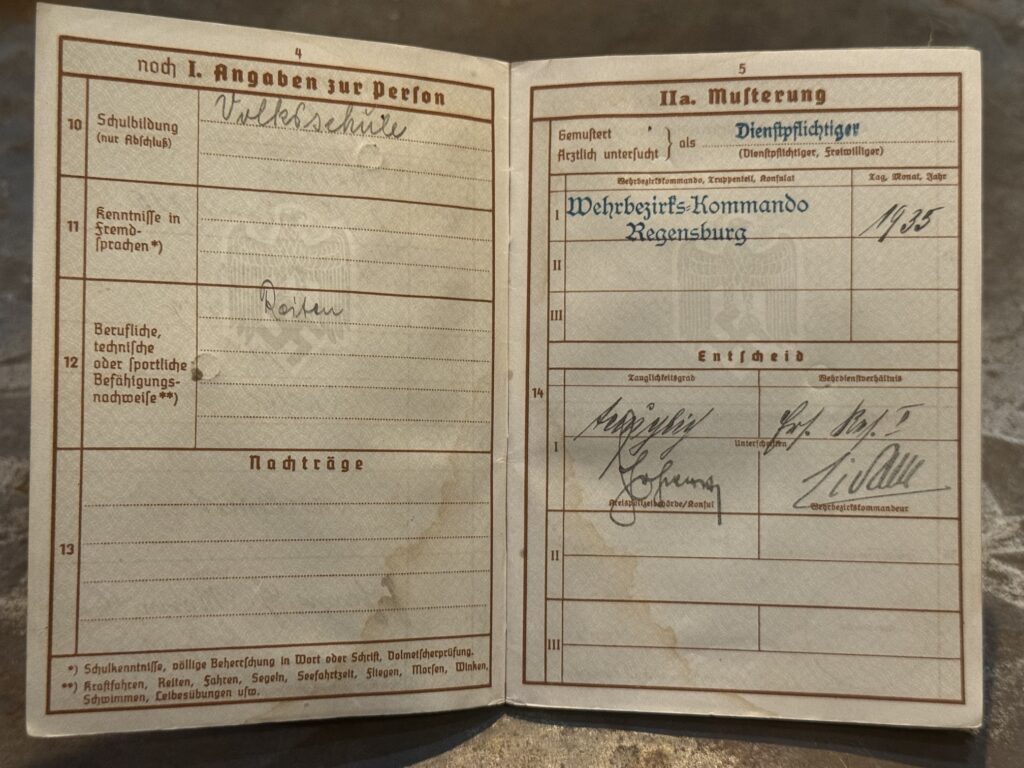 4
noch I. Angaben zur Person
10
Schulbildung
(nur Abschluß)
Volksschule
11
Kenntnisse in
Fremd-
sprachen*)
12
Berufliche,
technische
oder sportliche
Befähigungs-
nachweise**)
Reiten
Nachträge
13
*) Schulkenntnisse, völlige Beherrschung in Wort oder Schrift, Dolmetscherprüfung.
**) Kraftfahren, Reiten, Fahren, Segeln, Seefahrtzeit, Fliegen, Morsen, Winken,
Schwimmen, Leibesübungen usw.
5
IIa. Musterung
Gemustert
Ärztlich untersucht } als Dienstpflichtiger
(Dienstpflichtiger, Freiwilliger)
Wehrbezirkskommando, Truppenteil, Konsulat
Tag, Monat, Jahr
I
Wehrbezirks-Kommando
Regensburg
1935
II
III
Entscheid
14
Tauglichkeitsgrad
Wehrdienstverhältnis
I
tauglich
Ers. Res. I
Unterschriften
Kreispolizeibehörde/Konsul
Wehrbezirkskommandeur
II
III